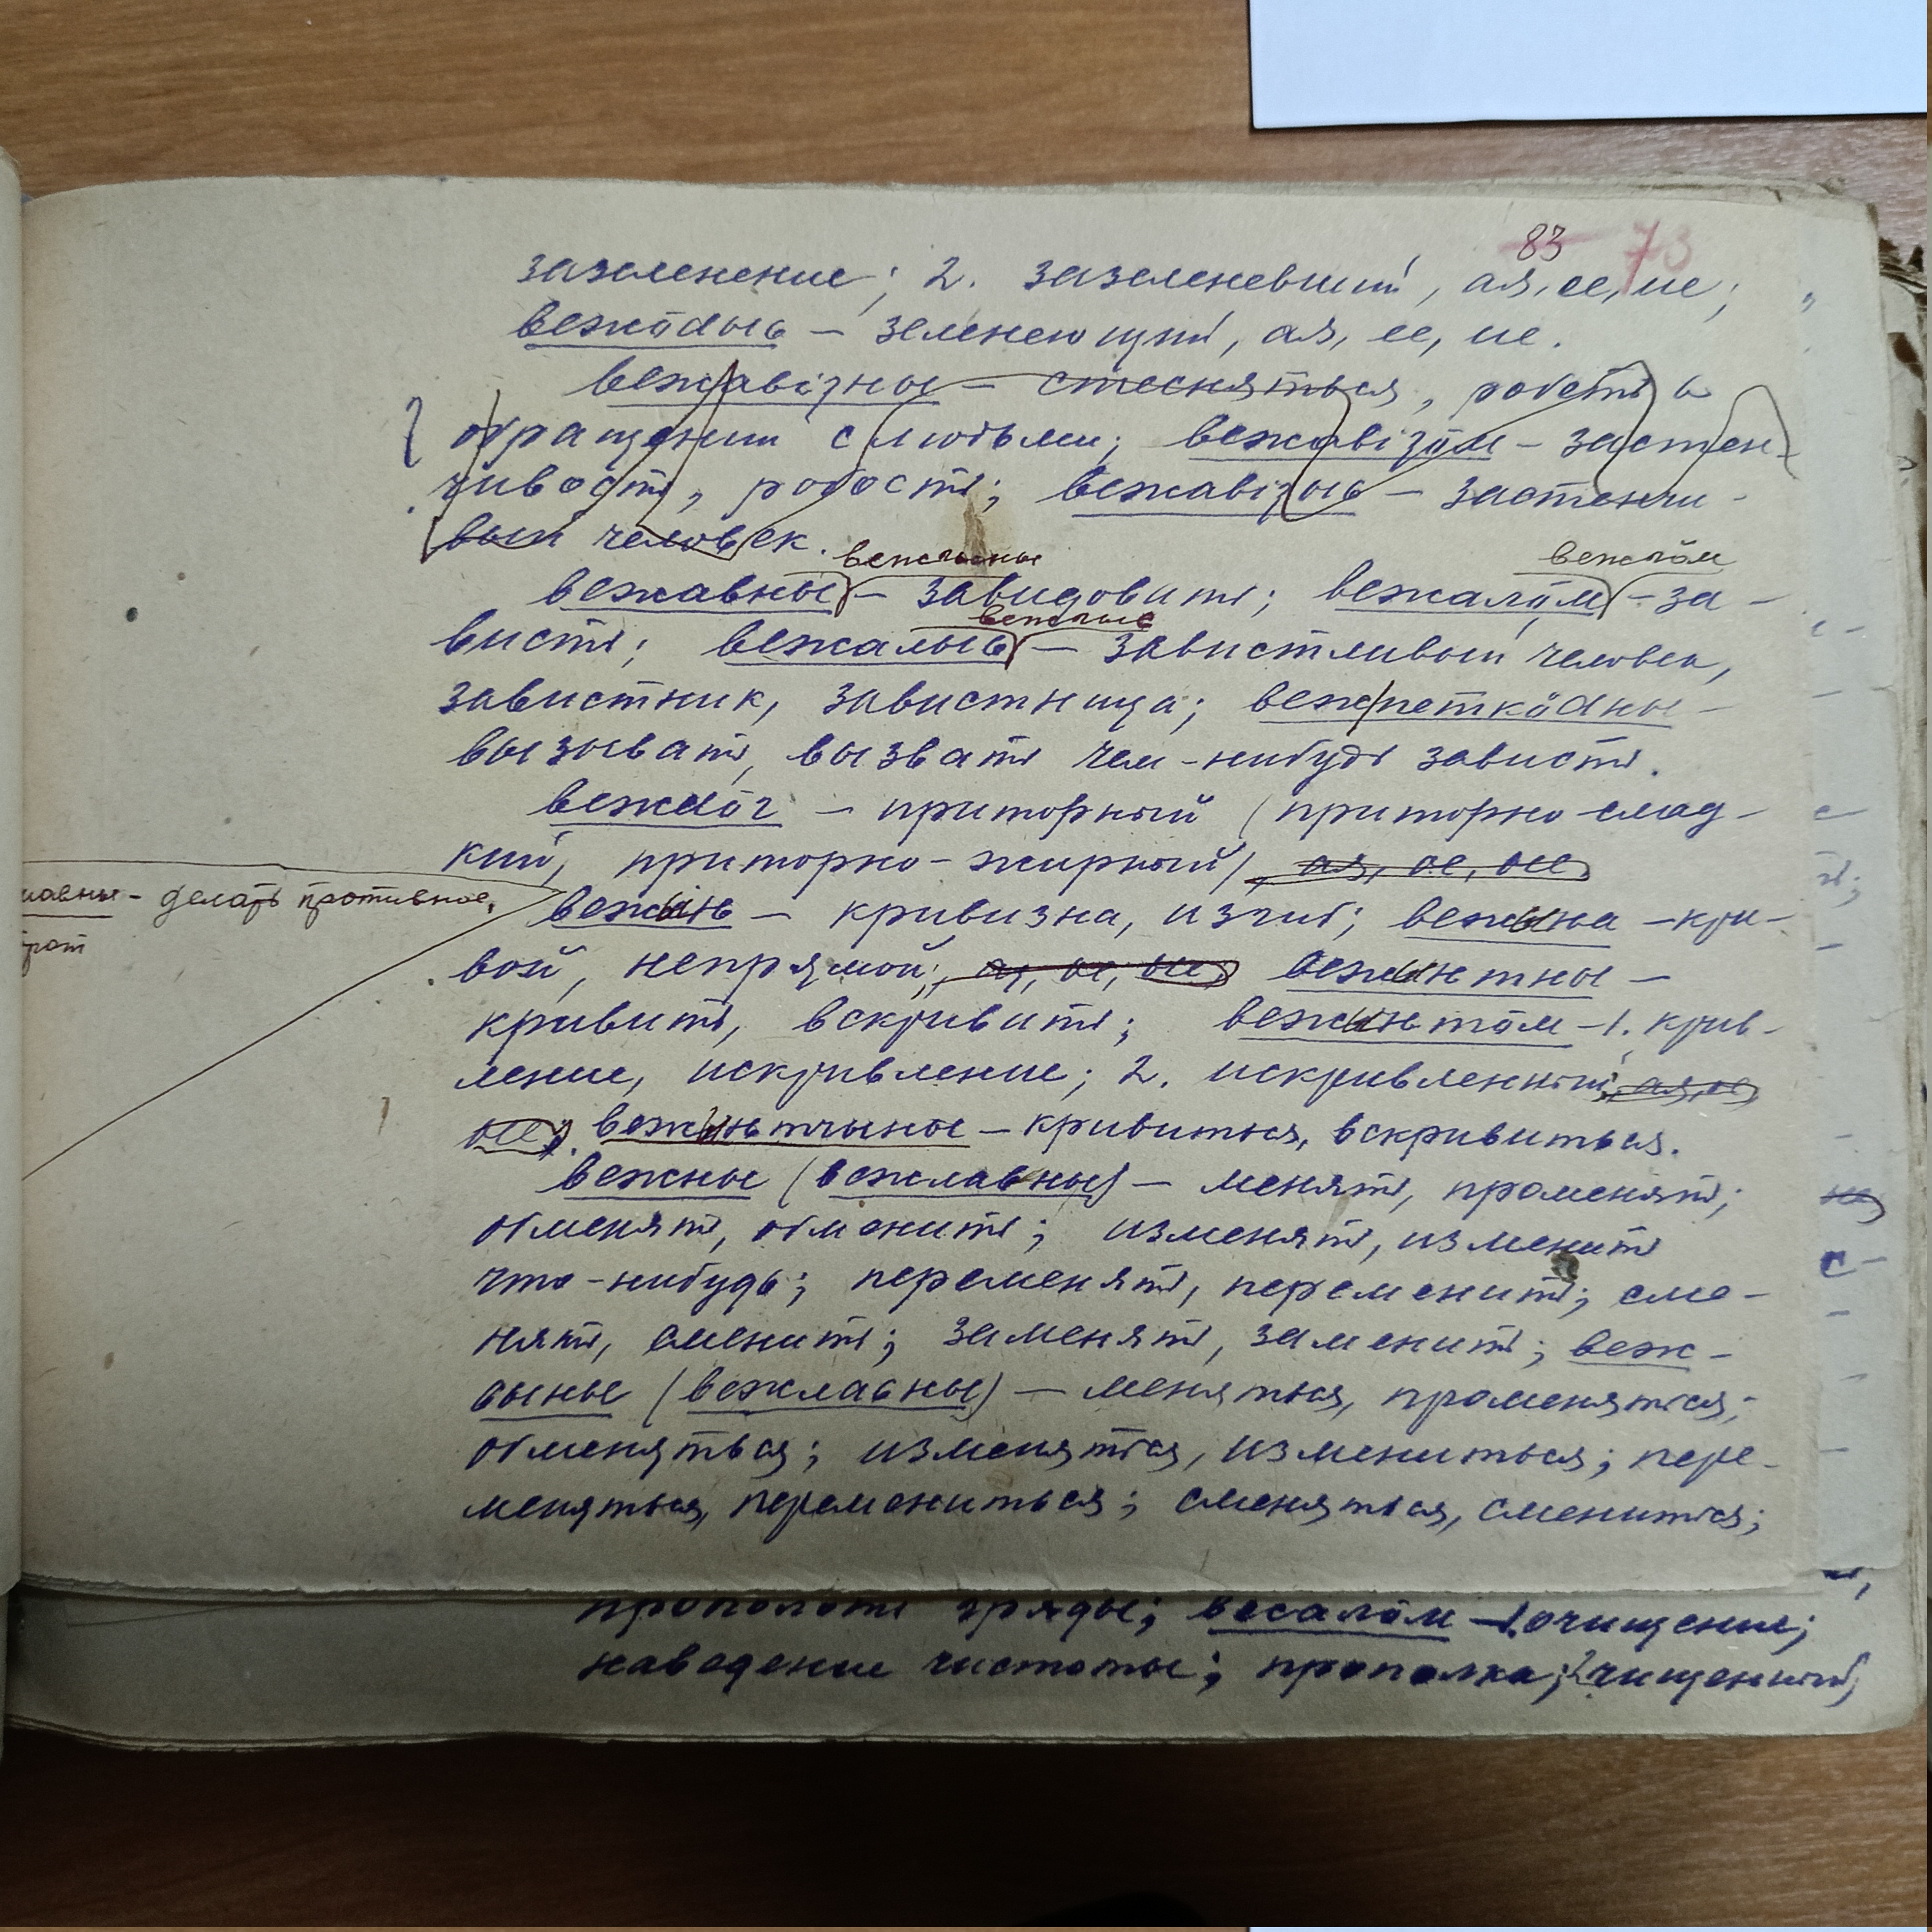 83 73
зазеленение; 2. зазеленевший, ая, ее, ие;
вежӧдысь – зеленеющий, ая, ее, ие.
вежавізны – стесняться, робеть в
обращении с людьми; вежавізӧм – застен-
чивость, робость; вежавізысь – застенчи-
вый человек.
вежсьыны вежсӧм
вежавны – завидовать; вежалӧм – за-
вежысь
висть; вежалысь – завистливый человек,
завистник, завистница; вежпеткӧдны –
вызывать, вызвать чем-нибудь зависть.
веждӧг – приторный (приторно-слад-
кий, приторно-жирный), ая, ое, ые.
лавны – делать противное,
врат
вежынь – кривизна, изгиб; вежына – кри-
вой, непрямой; ая, ое, ые; вежынтны –
кривить, вскривить; вежыньтӧм – 1. крив-
ление, искривление; 2. искривленный, ая, ое,
ые; вежыньтчыны – кривиться, вскривиться.
вежны (вежлавны) – менять, променять;
обменять, обменить; изменять, изменить
что-нибудь; переменять, переменить; сме-
нять, сменить; заменять, заменить; веж-
сьыны (вежласьны) – меняться, променяться;
обменяться; изменяться, измениться; пере-
меняться, перемениться; сменяться, смениться;
прополоть гряды; весалӧм – 1. очищение;
наведение чистоты; прополка; 2. чищенный;